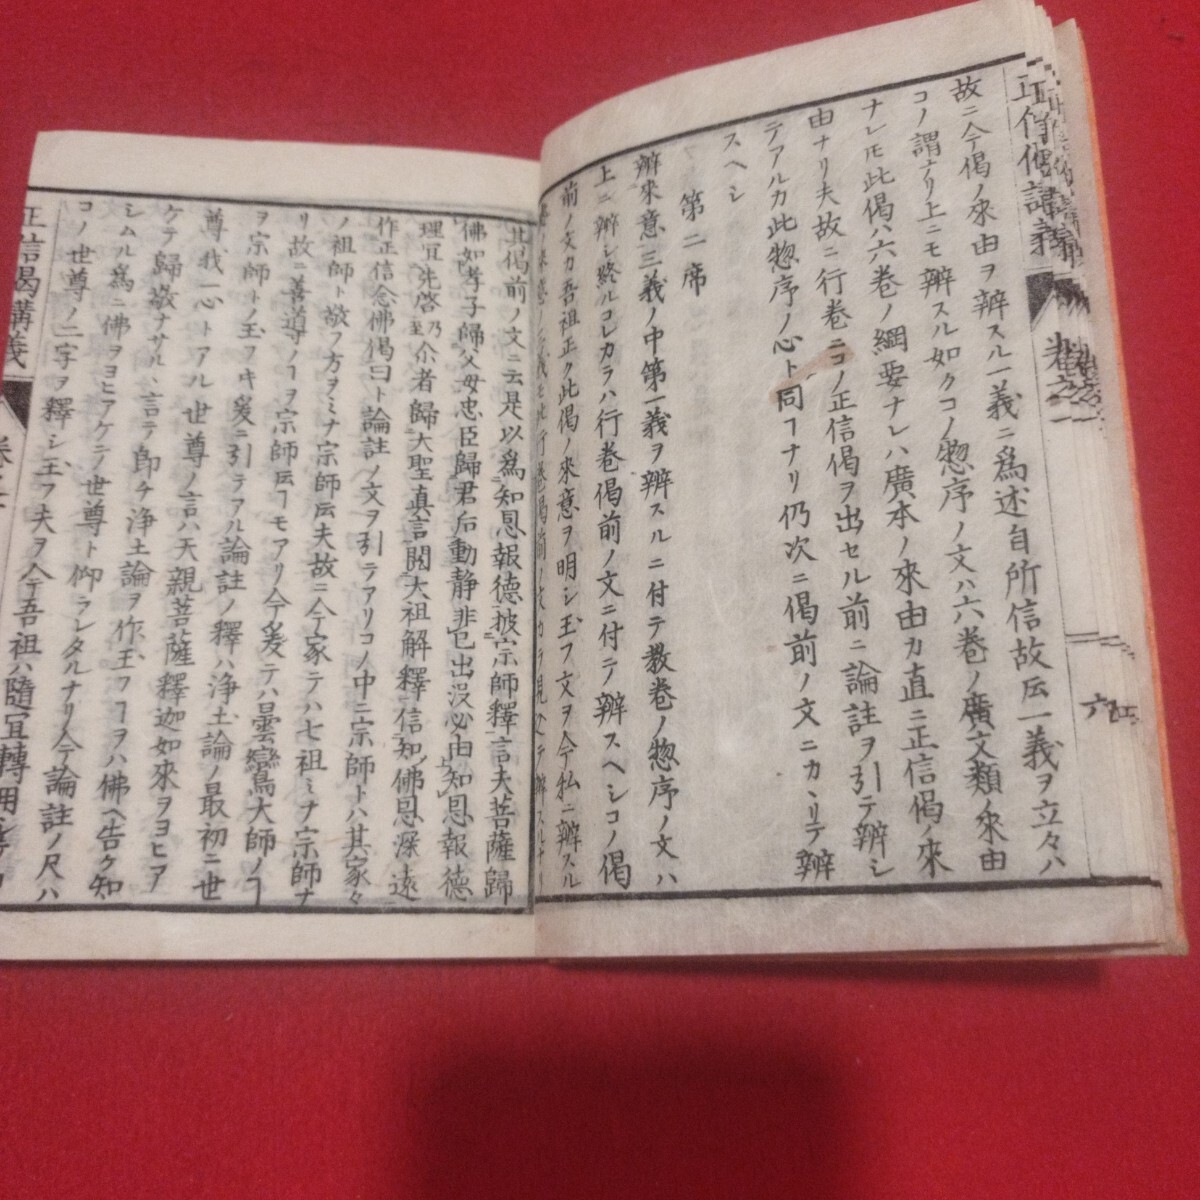 正信偈講義 卷之一
故ニ今偈ノ來由ヲ辨スル一義ニ爲述自所信故云一義ヲ立々ハ
コノ謂ナリ上ニモ辨スル如クコノ惣序ノ文ハ六卷ノ廣文類ノ來由
ナレモ此偈ハ六卷ノ綱要ナレハ廣本ノ來由カ直ニ正信偈ノ來
由ナリ夫故ニ行卷ニコノ正信偈ヲ出セル前ニ論註ヲ引テ辨シ
テアルカ此惣序ノ心ト同ヿナリ仍次ニ偈前ノ文ニカヽリテ辨
スヘシ
第二席
辨來意三義ノ中第一義ヲ辨スルニ付テ教卷ノ惣序ノ文ハ
上ニ辨シ終ルコレカラハ行卷偈前ノ文ニ付テ辨スヘシコノ偈
前ノ文カ吾祖正ク此偈ノ來意ヲ明シ玉フ文ヲ今私ニ辨スル
其偈前ノ文ニ云是以爲知恩報德披宗師釋言夫菩薩歸
佛如孝子歸父母忠臣歸君后動静非己出没必由知恩報德
理宜先啓乃至尒者歸大聖眞言閲大祖解釋信知佛恩深遠
作正信念佛偈曰ト論註ノ文ヲ引テアリコノ中ニ宗師トハ其家々
ノ祖師ト敬フ方ヲミナ宗師云夫故ニ今家テハ七祖ミナ宗師ナ
リ故ニ善導ノヿヲ宗師云ヿモアリ今爰テハ曇鸞大師ノヿ
ヲ宗師ト玉フキ爰ニ引テアル論註ノ釋ハ淨土論ノ最初ニ世
尊我一心トアル世尊ノ言ハ天親菩薩釋迦如來ヲヨヒア
ケテ歸敬ナサルヽ言テ即チ浄土論ヲ作玉フヿヲハ佛ヘ告ク知
シムル爲ニ佛ヲヨヒアケテ世尊ト仰ラレタルナリ今論註ノ尺ハ
コノ世尊ノ二字ヲ釋シ玉フ夫ヲ今吾祖ハ隨宜轉用
正信偈講義